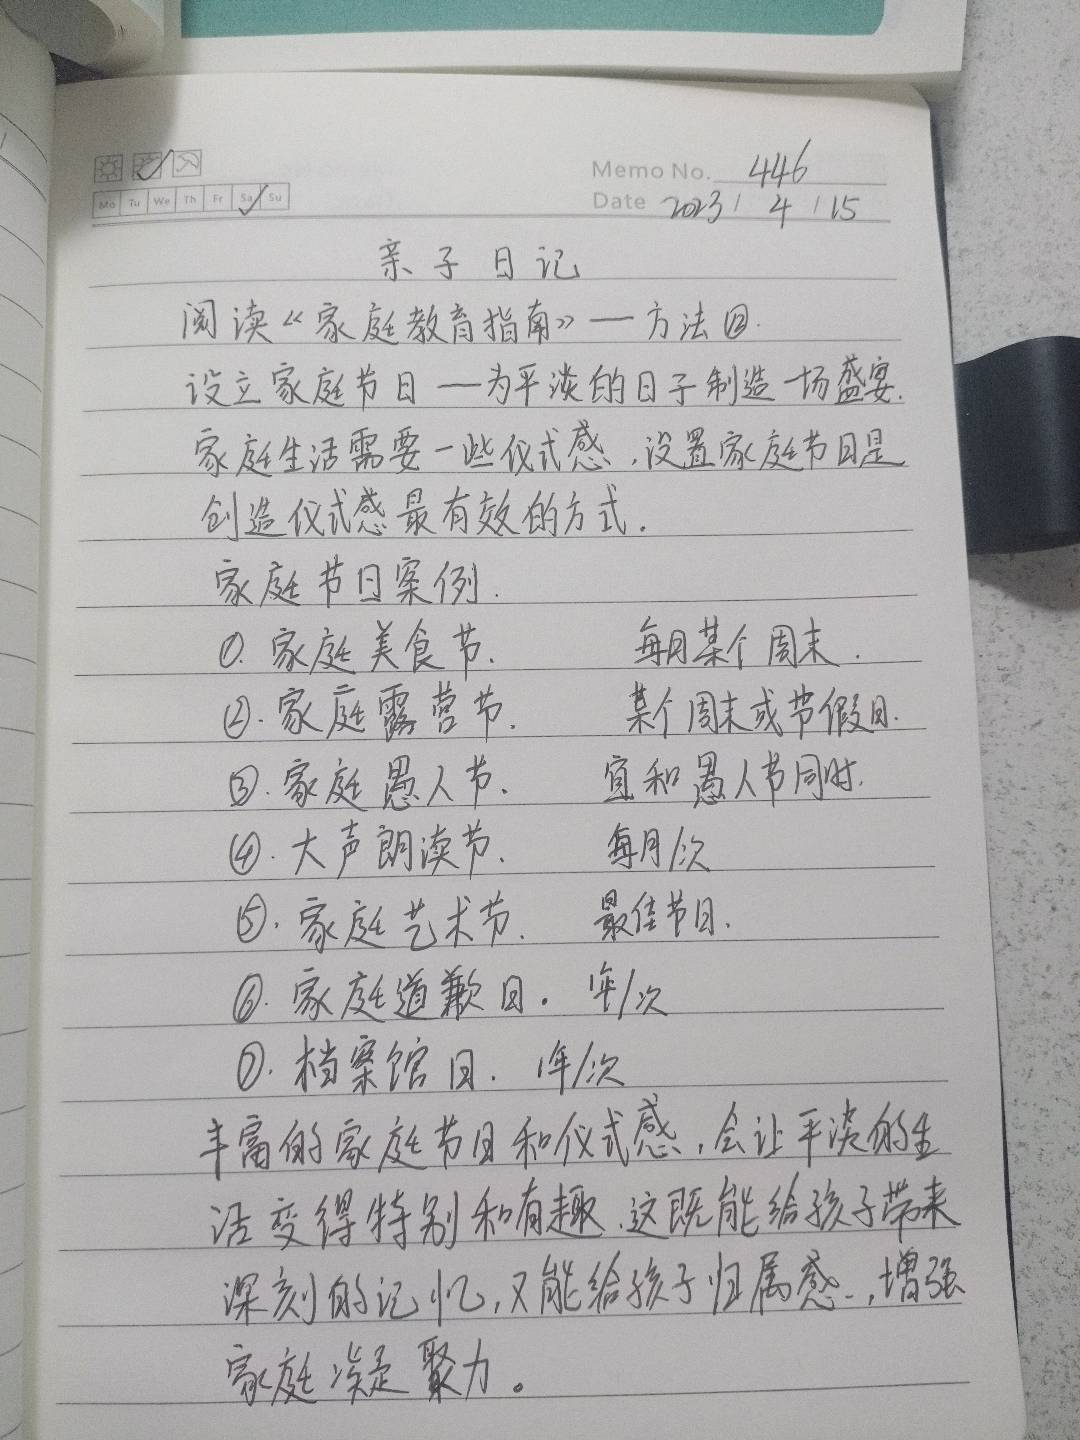 Memo No. 446
Mo Tu We Th Fr Sa Su
Date 2023 / 4 / 15
亲子日记
阅读《家庭教育指南》—方法四.
设立家庭节日—为平淡的日子制造一场盛宴.
家庭生活需要一些仪式感,设置家庭节日是
创造仪式感最有效的方式.
家庭节日案例.
①.家庭美食节. 每月某个周末.
②.家庭露营节. 某个周末或节假日.
③.家庭愚人节. 宜和愚人节同时.
④.大声朗读节. 每月/次
⑤.家庭艺术节. 最佳节日.
⑥.家庭道歉日. 1年/次
⑦.档案馆日. 1年/次
丰富的家庭节日和仪式感,会让平淡的生
活变得特别和有趣.这既能给孩子带来
深刻的记忆,又能给孩子归属感,增强
家庭凝聚力。